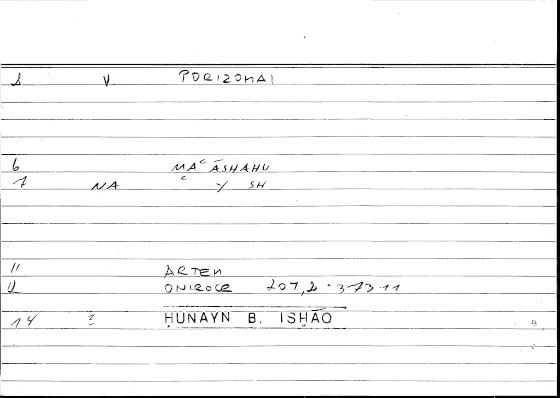 2 V PORIZONAI
6 MAᶜĀSHAHU
7 NA ᶜ Y SH
11 ARTEM
12 ONIROCR 207,2 - 373 11
14 ? ḤUNAYN B. ISḤĀQ